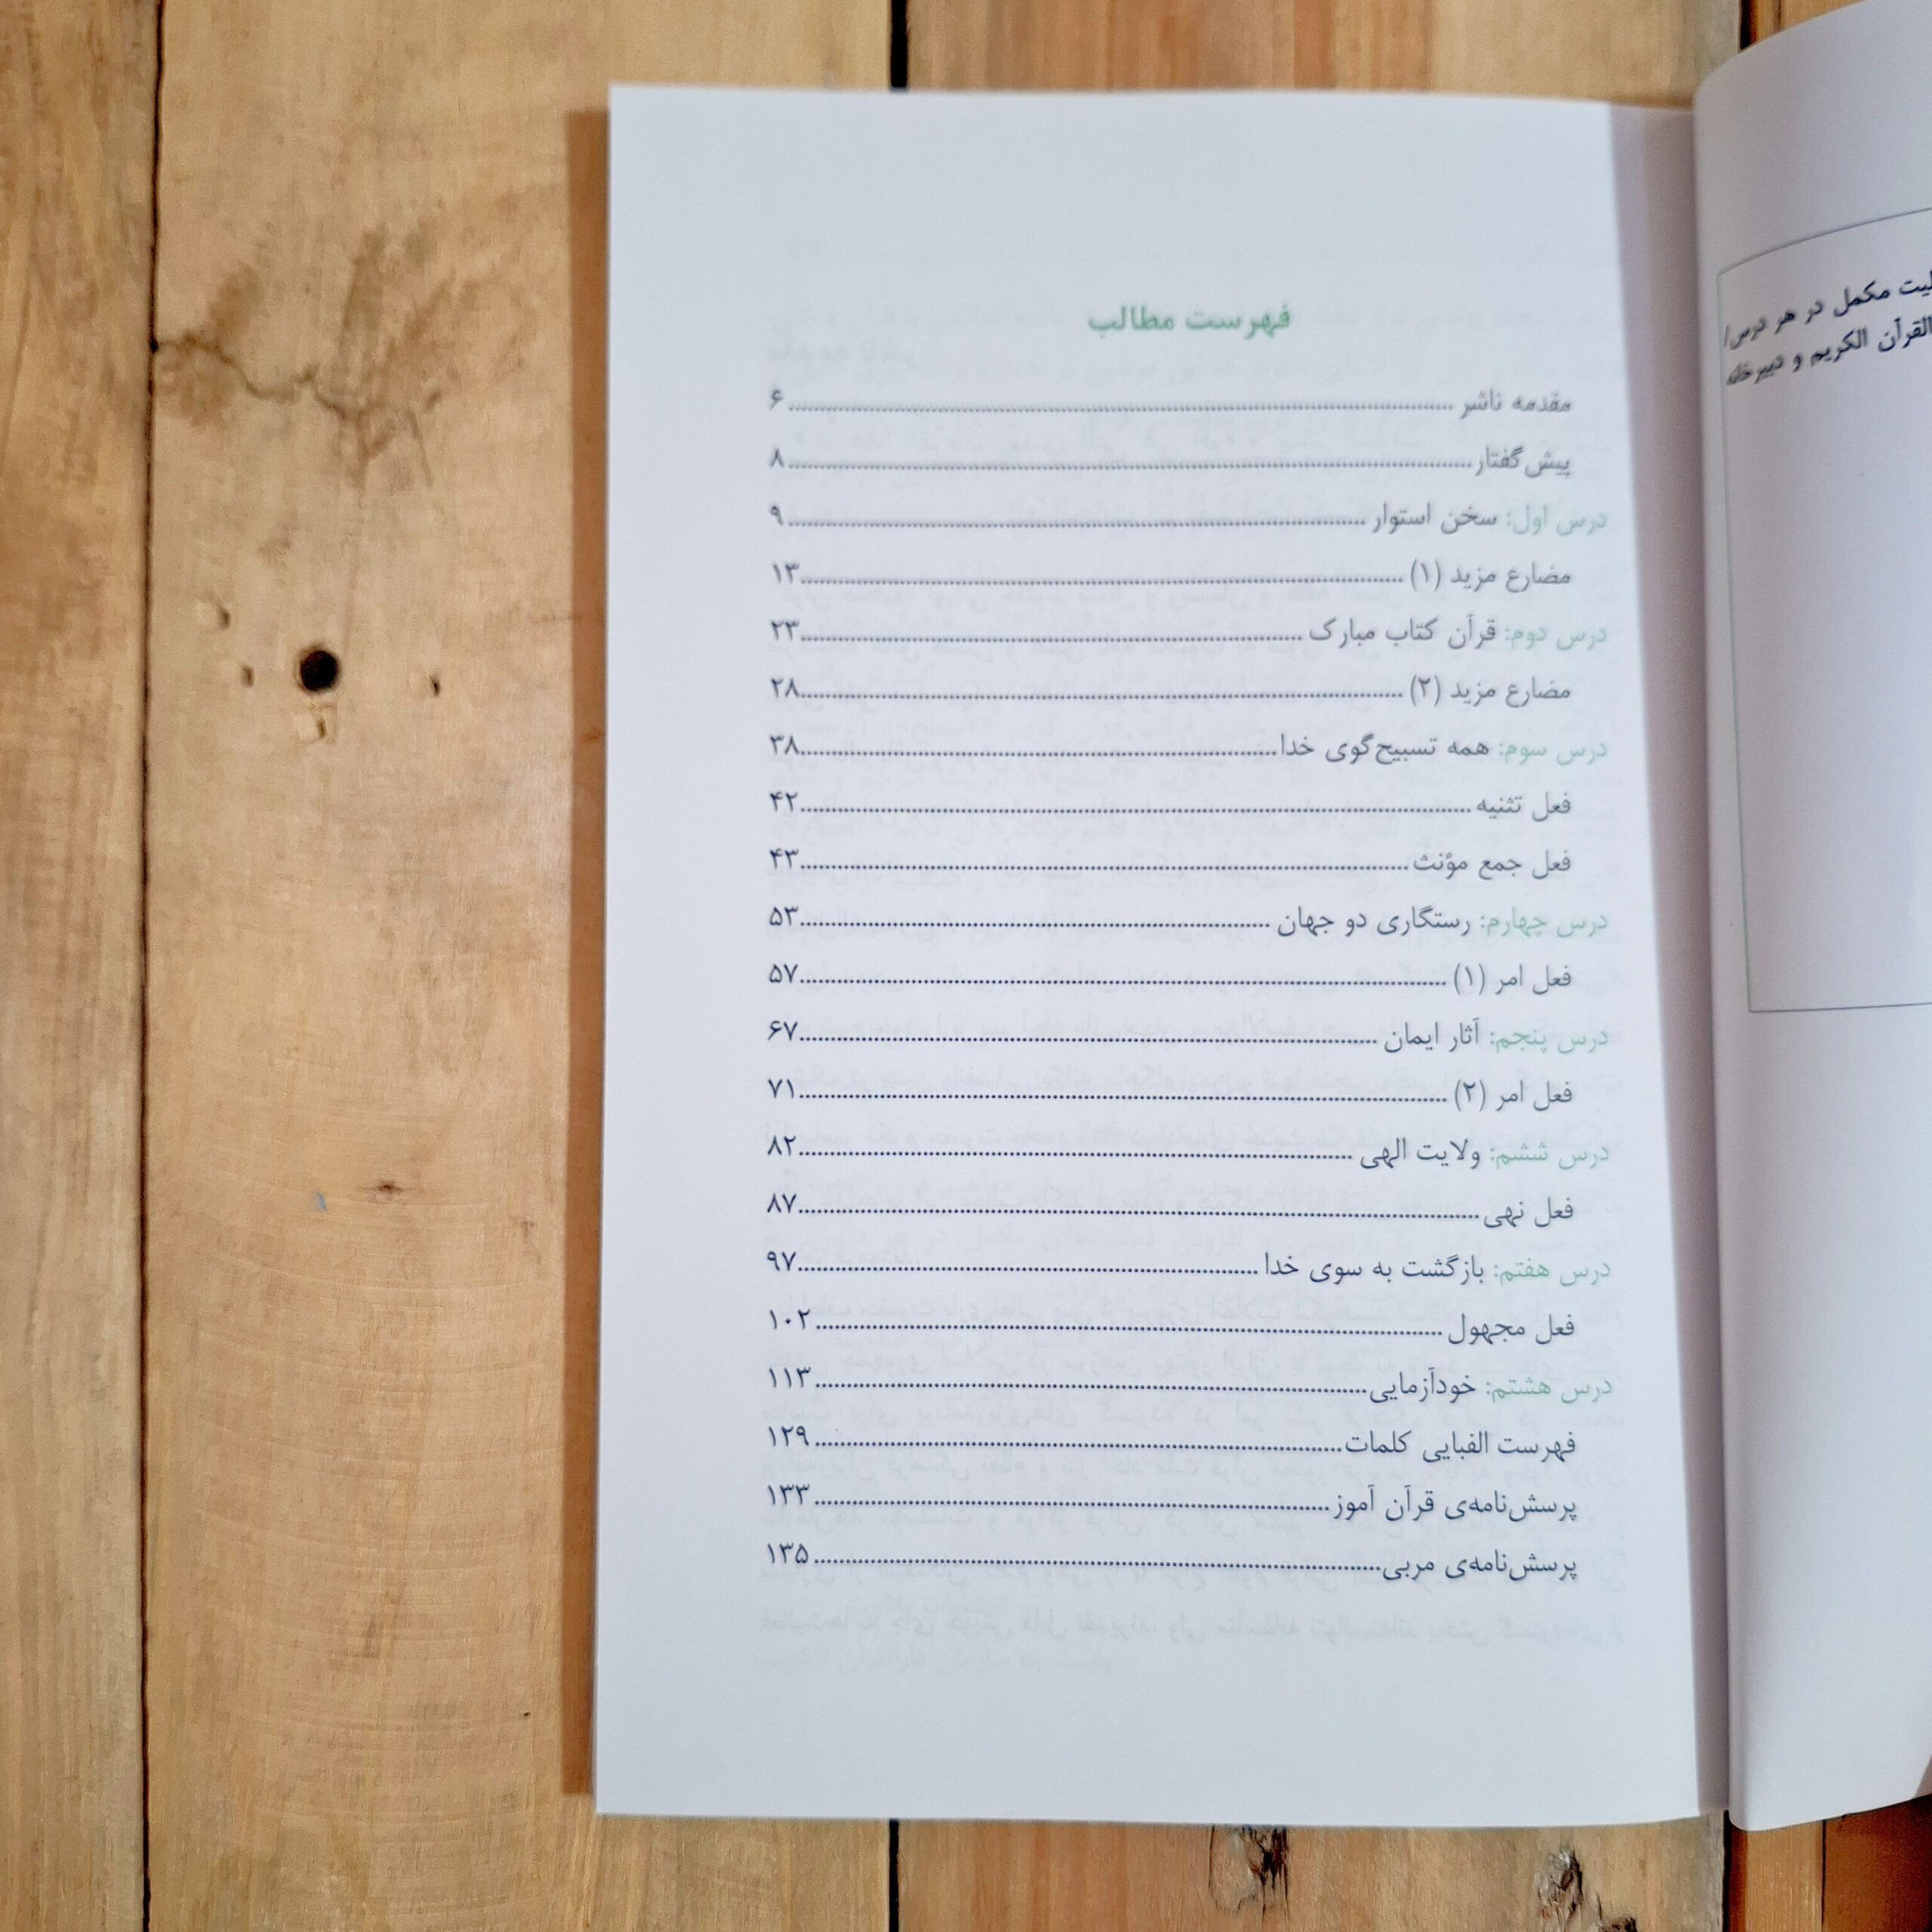 فهرست مطالب
مقدمه ناشر ........ ۶
پیش‌گفتار ........ ۸
درس اول: سخن استوار ........ ۹
مضارع مزید (۱) ........ ۱۳
درس دوم: قرآن کتاب مبارک ........ ۲۳
مضارع مزید (۲) ........ ۲۸
درس سوم: همه تسبیح‌گوی خدا ........ ۳۸
فعل تثنیه ........ ۴۲
فعل جمع مؤنث ........ ۴۳
درس چهارم: رستگاری دو جهان ........ ۵۳
فعل امر (۱) ........ ۵۷
درس پنجم: آثار ایمان ........ ۶۷
فعل امر (۲) ........ ۷۱
درس ششم: ولایت الهی ........ ۸۲
فعل نهی ........ ۸۷
درس هفتم: بازگشت به سوی خدا ........ ۹۷
فعل مجهول ........ ۱۰۲
درس هشتم: خودآزمایی ........ ۱۱۳
فهرست الفبایی کلمات ........ ۱۲۹
پرسش‌نامه‌ی قرآن آموز ........ ۱۳۳
پرسش‌نامه‌ی مربی ........ ۱۳۵
مکمل در هر درس/
القرآن الکریم و دبیرخانه